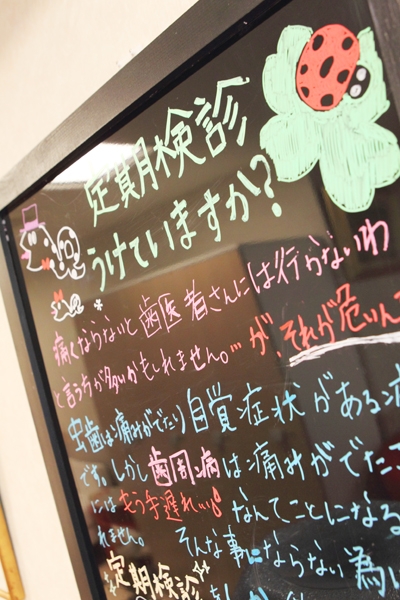 定期検診
うけていますか?
痛くならないと歯医者さんには行かないわ
と言う方が多いかもしれません。…が、それが危いん
虫歯は痛みがでたり自覚症状がある
です。しかし歯周病は痛みがでた
にはもう手遅れ…!なんてことになる
れません。そんな事にならない為
定期検診